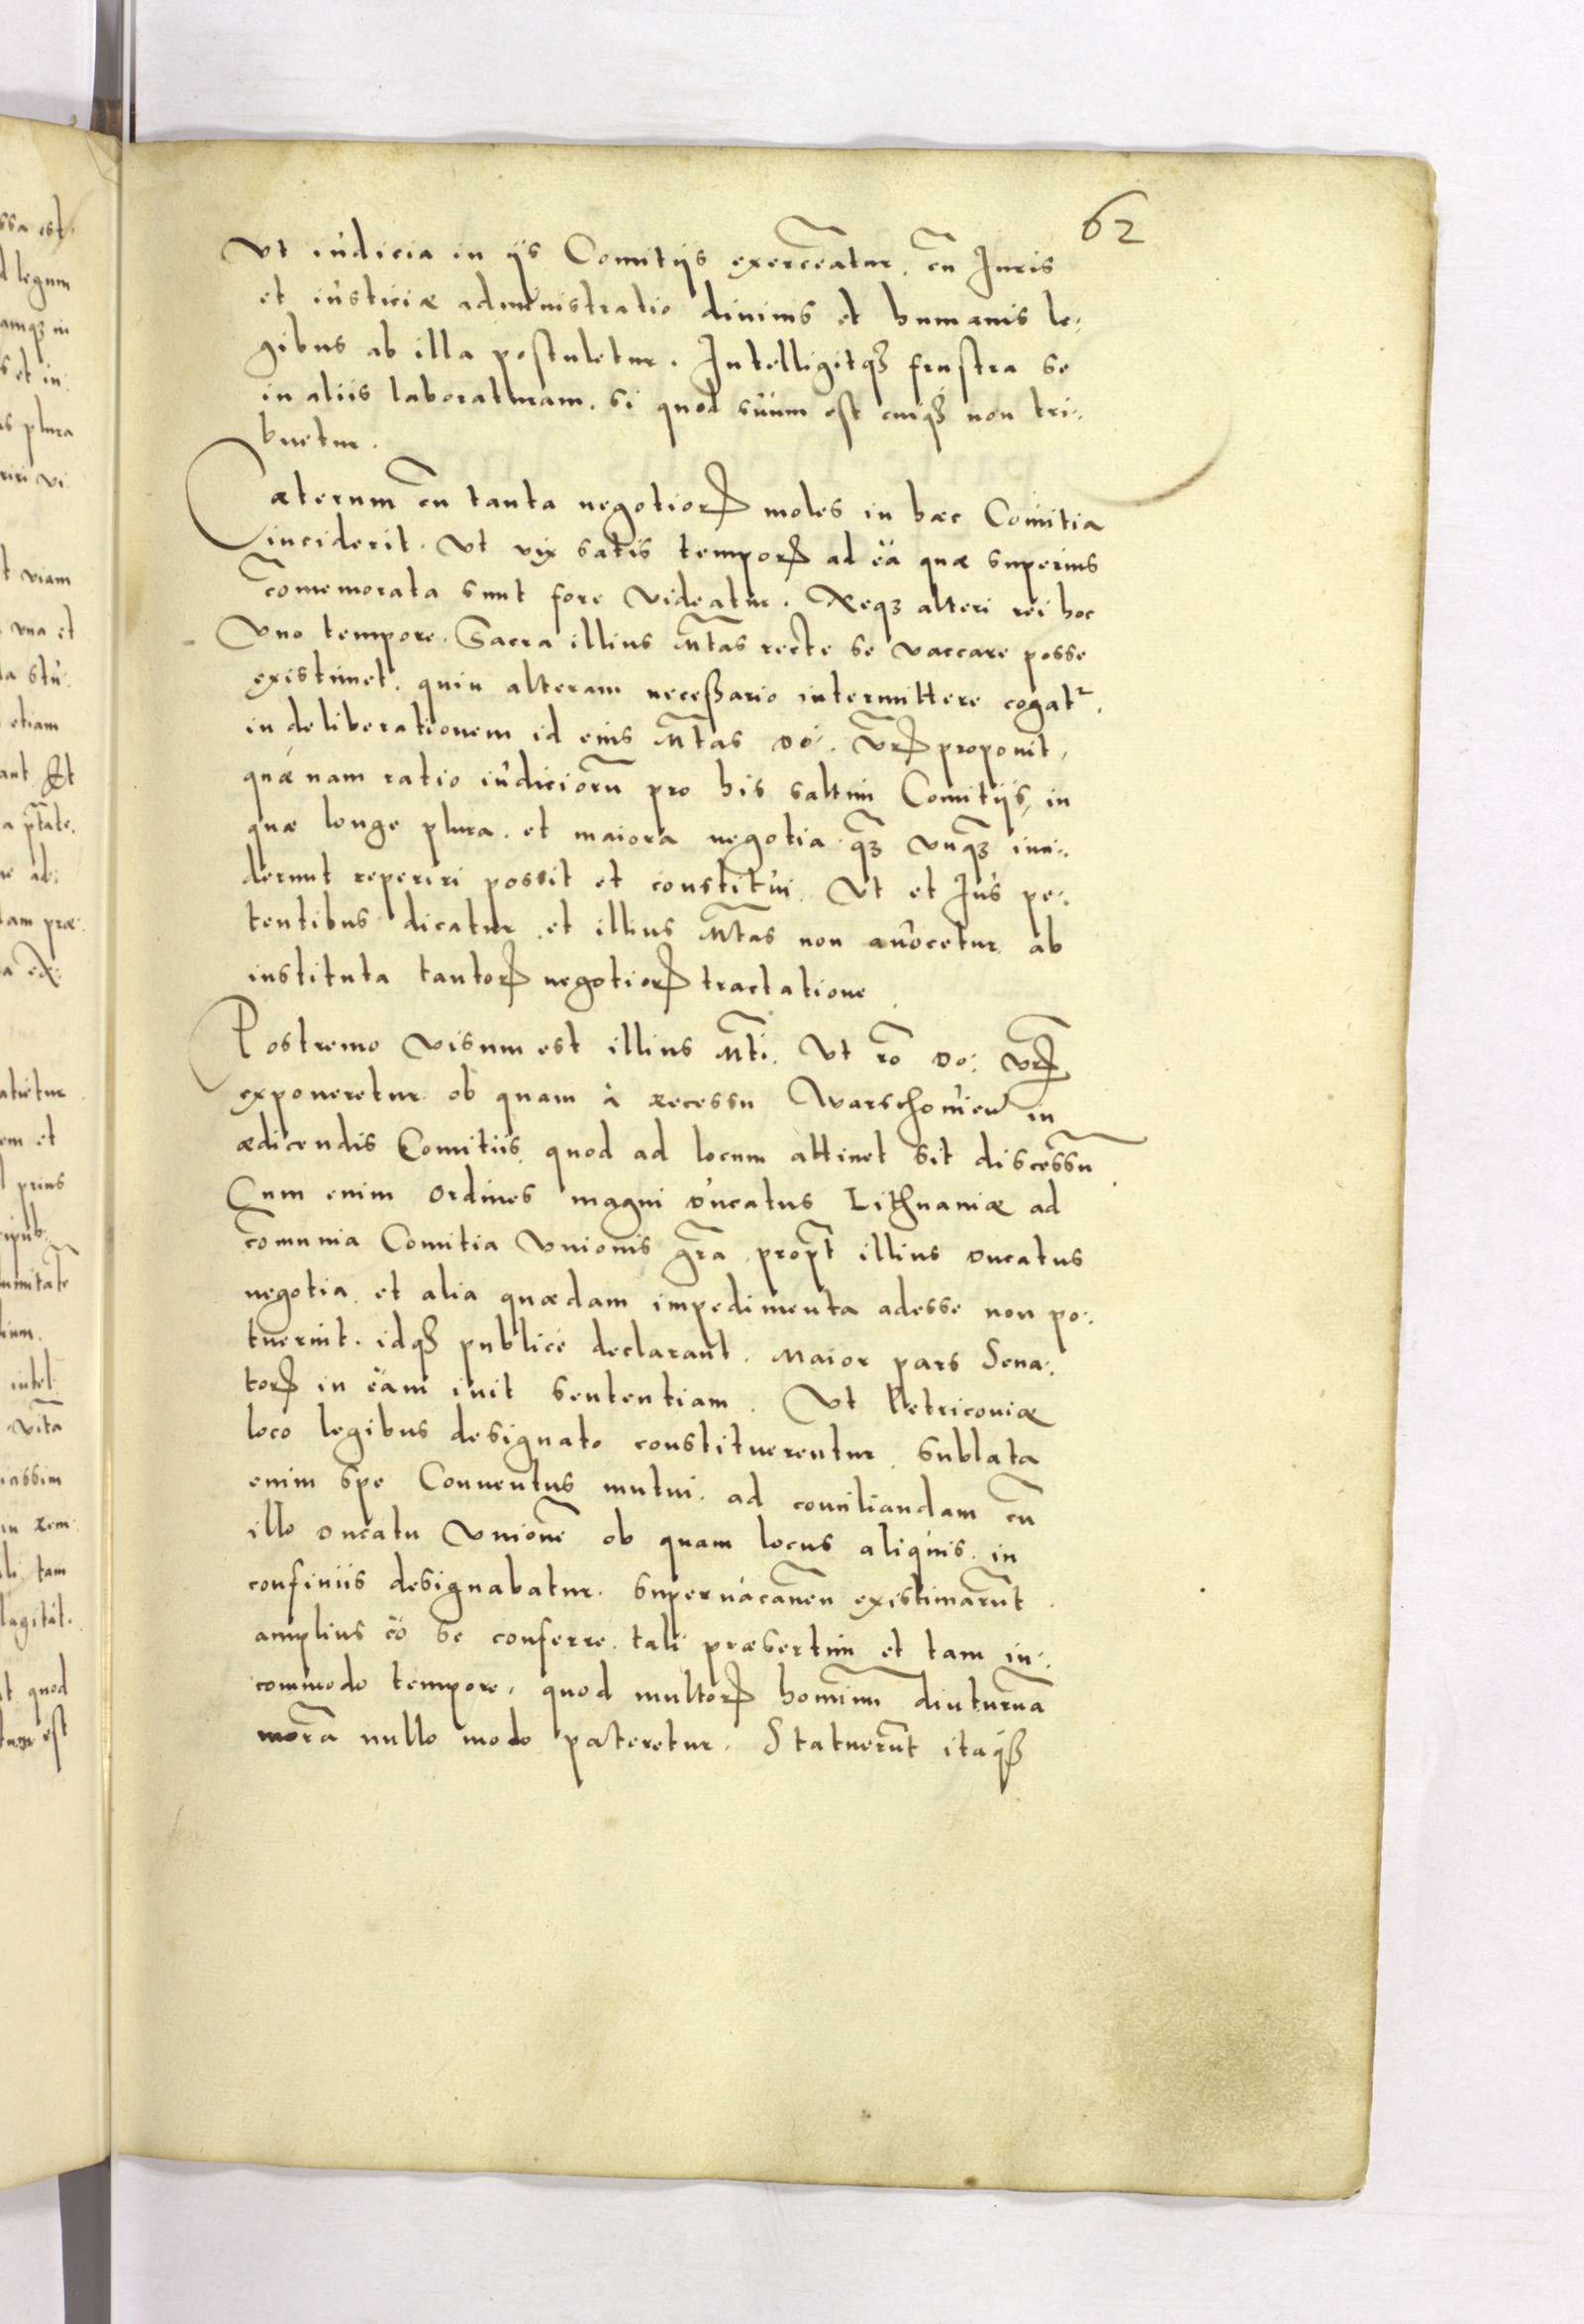 62
Vt iudicia in ijs Comitijs exerceãtur. cũ Juris
et iusticiæ administratio diuinis et humanis le⸗
gibus ab illa postuletur. Intelligitqȝ frustra se
in aliis laboraturam. si quod suum est cuiqȝ non tri⸗
buetur.
Cæterum cũ tanta negotioꝝ moles in hæc Comitia
inciderit. Vt vix satis tempoꝝ ad ea quæ superius
com̃emorata sunt fore videatur. Neqȝ alteri rei hoc
Vno tempore. Sacra illius Mt̃as recte se vaccare posse
existimet. quin alteram neceßario intermittere cogatᵗ.
in deliberationem id eius Mt̃as do: vr̃ꝝ proponit,
quænam ratio iudiciorũ pro his saltim Comitijs, in
quæ longe plura. et maiora negotia qȝ̃ vnqȝ̃ inci⸗
derunt reperiri possit et constitui. Vt et Jus pe⸗
tentibus dicatur et illius Mt̃as non auocetur ab
instituta tantoꝝ negotioꝝ tractatione
Postremo visum est illius Mt̃i. Vt rõ do: vr̃ꝝ
exponeretur ob quam à recessu Warschouieñ in
ædicendis Comitiis quod ad locum attinet sit discessũ.
Cum enim ordines magni ducatus Lithuaniæ ad
com̃unia Comitia Vnionis gr̃a propt̃ illius ducatus
negotia et alia quædam impedimenta adesse non po⸗
tuerint. idqȝ publicè declarant. Maior pars Sena⸗
toꝝ in eam iuit sententiam. Vt Petricouiæ
loco legibus designato constituerentur sublata
enim spe Conuentus mutui. ad conciliandam cũ
illo ducatu Vnionẽ ob quam locus aliquis in
confiniis designabatur. superuacaneũ existimarũt
amplius eo se conferre. tali præsertim et tam in⸗
commodo tempore, quod multoꝝ hominũ diuturnã
morã nullo modo pateretur. Statuerũt itaqȝ